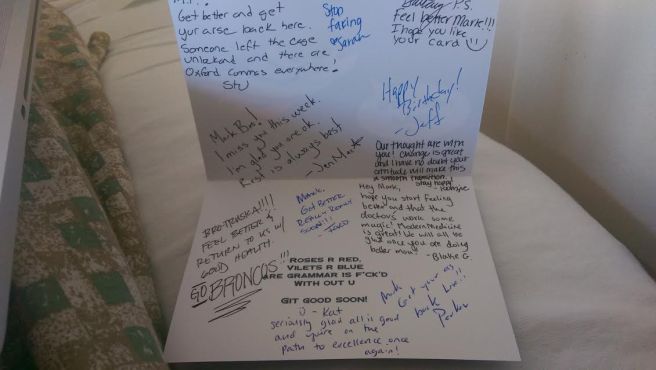 Get better and get
yur arse back here.
Someone left the cage
unlocked and there are
Oxford commas everywhere!
Stu
Stop
faking
Sarah
P.S.
Feel better Mark!!!
I hope you like
your card
Happy
Birthday!
-Jeff
Mark Bro!
I miss you this week.
I'm glad you are ok.
Rest is always best
-Jen
Our thought are with
you! Change is great
and I have no doubt your
attitude will make this
a smooth transition.
stay happy!
BRO-TRUSKA!!!!
FEEL BETTER &
RETURN TO US W/
GOOD HEALTH.
GO BRONCOS!!!
Mark,
GOT BETTER
REALLY REALLY
SOON!!!
- TODD
Hey Mark,
hope you start feeling
better and that the
doctors work some
magic! Modern Medicine
is great! We will all be
glad once you are doing
better man!
-Blake G.
ROSES R RED,
VILETS R BLUE
ARE GRAMMAR IS F*CK'D
WITH OUT U
GIT GOOD SOON!
- Kat
seriously glad all is good
and you're on the
path to excellence once
again!
Mark
Get your ass
back here!!
Parker